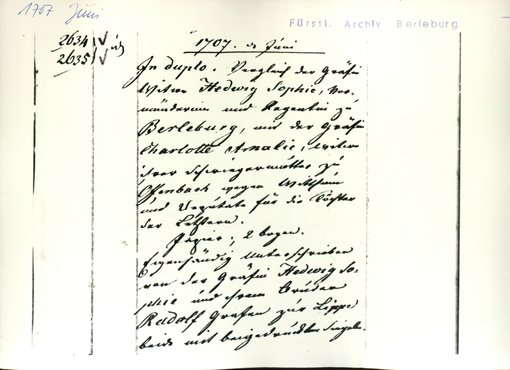 1707 Juni
Fürstl. Archiv Berleburg
2634 √
2635 √
1707. Juni
In duplo. Vergleich der Gräfin
Witwe Hedwig Sophie, Vor-
münderin und Regentin zu
Berleburg, mit der Gräfin
Charlotte Amalie, Witwe
ihrer Schwiegermutter zu
Offenbach wegen Witthum
und Deputate für die Töchter
der Letztern.
Papier, 2 bogen.
Eigenhändig unterschrieben
von der Gräfin Hedwig So-
phie und ihrem Bruder
Rudolf Grafen zur Lippe
beide mit beigedruckten Siegeln.